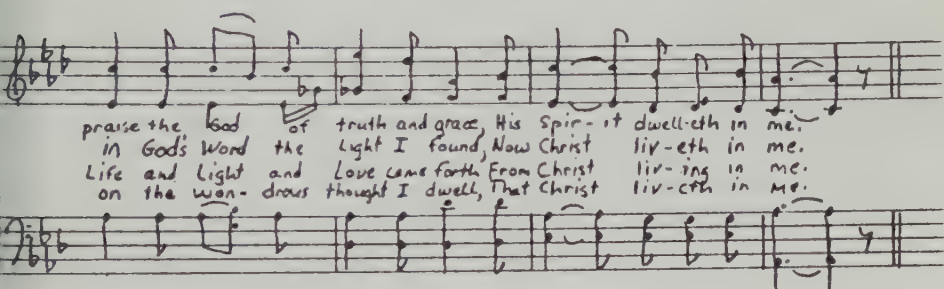 praise the God of truth and grace, His Spir-it dwell-eth in me.
in God's Word the Light I found, Now Christ liv-eth in me.
Life and Light and Love came forth From Christ liv-ing in me.
on the won-drous thought I dwell, That Christ liv-eth in me.